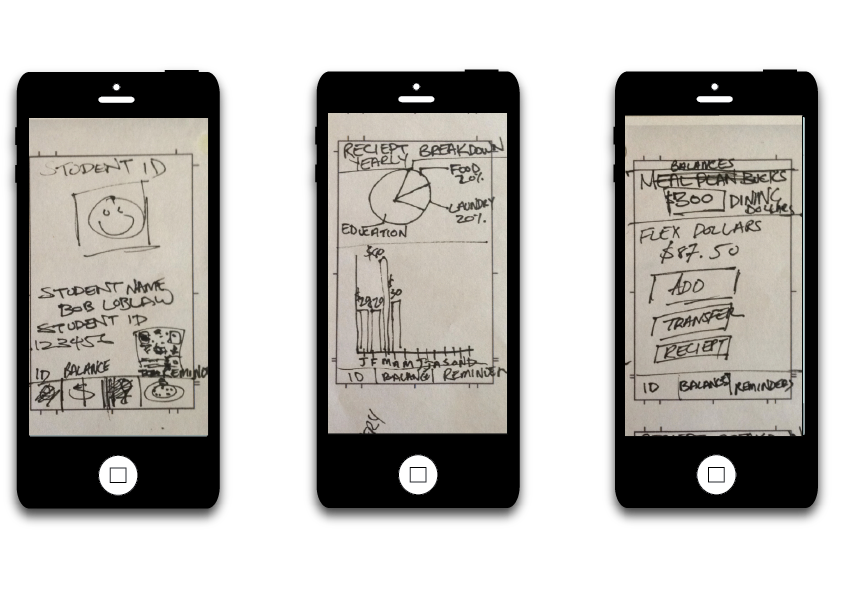 STUDENT ID
STUDENT NAME
BOB LOBLAW
STUDENT ID
123456
ID BALANCE REMIND
$
RECIEPT BREAKDOWN
YEARLY
FOOD
20%
LAUNDRY
20%
EDUCATION
$60
$20 $20 $30
J F M A M J J A S O N D
ID BALANCE REMINDER
BALANCES
MEAL PLAN BUCKS
$300 DINING
DOLLARS
FLEX DOLLARS
$87.50
ADD
TRANSFER
RECIEPT
ID BALANCE REMINDERS